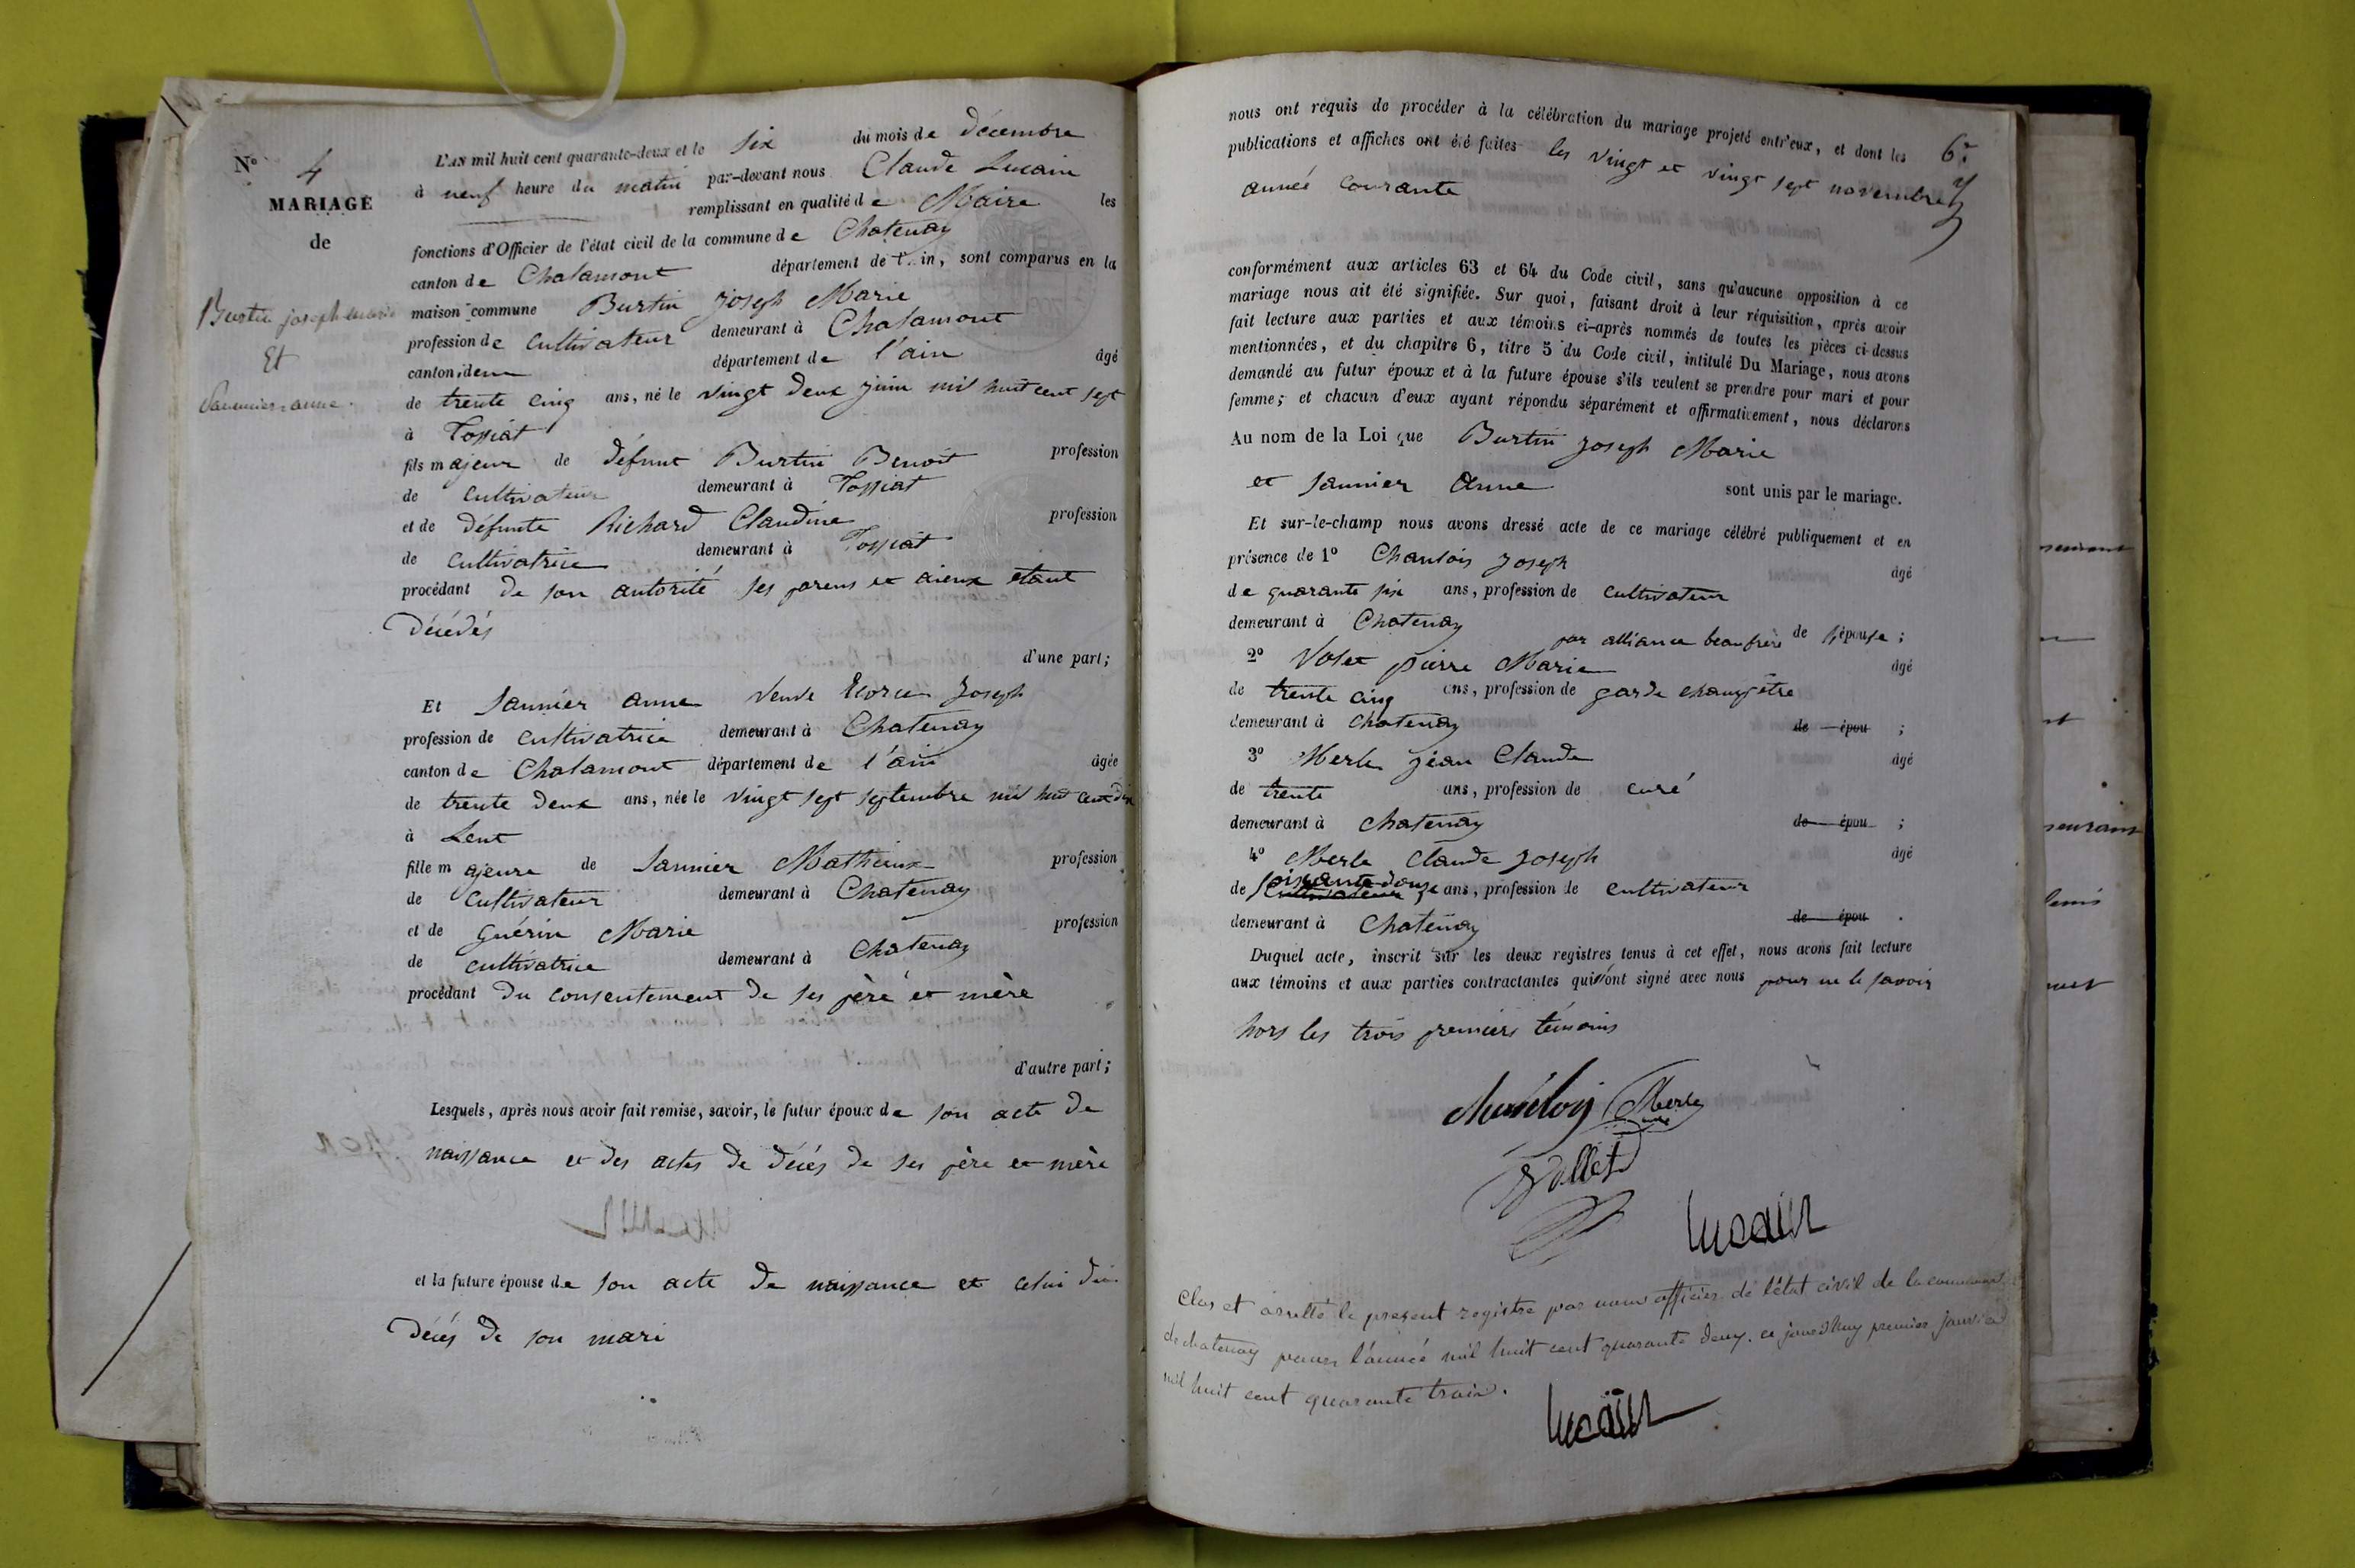 N° 4
MARIAGE
de
Burtin joseph marie
Et
Saunier anne.
L'AN mil huit cent quarante-deux et le six du mois de décembre
à neuf heure du matin par-devant nous Claude Lucain
remplissant en qualité de Maire les
fonctions d'Officier de l'état civil de la commune de Chatenay
canton de Chalamont département de l'Ain, sont comparus en la
maison commune Burtin joseph Marie
profession de Cultivateur demeurant à Chalamont
canton idem département de l'ain âgé
de trente cinq ans, né le vingt deux juin mil huit cent sept
à Tossiat
fils majeur de défunt Burtin Benoit profession
de Cultivateur demeurant à Tossiat
et de défunte Richard Claudine profession
de Cultivatrice demeurant à Tossiat
procédant de son autorité ses parens et aieux étant
décédés
d'une part;
Et Saunier anne veuve Joseph
profession de Cultivatrice demeurant à Chatenay
canton de Chalamont département de l'ain âgée
de trente deux ans, née le vingt sept septembre mil huit cent dix
à Lent
fille majeure de Saunier Mathieux profession
de Cultivateur demeurant à Chatenay
et de Guérin Marie profession
de cultivatrice demeurant à Chatenay
procédant du consentement de ses père et mère
d'autre part;
Lesquels, après nous avoir fait remise, savoir, le futur époux de son acte de
naissance et des actes de décés de ses père et mère
et la future épouse de son acte de naissance et celui du
décés de son mari
nous ont requis de procéder à la célébration du mariage projeté entr'eux, et dont les 6e
publications et affiches ont été faites les vingt et vingt sept novembre
année courante
conformément aux articles 63 et 64 du Code civil, sans qu'aucune opposition à ce
mariage nous ait été signifiée. Sur quoi, faisant droit à leur réquisition, après avoir
fait lecture aux parties et aux témoins ci-après nommés de toutes les pièces ci-dessus
mentionnées, et du chapitre 6, titre 5 du Code civil, intitulé Du Mariage, nous avons
demandé au futur époux et à la future épouse s'ils veulent se prendre pour mari et pour
femme; et chacun d'eux ayant répondu séparément et affirmativement, nous déclarons
Au nom de la Loi que Burtin joseph Marie
et Saunier Anne sont unis par le mariage.
Et sur-le-champ nous avons dressé acte de ce mariage célébré publiquement et en
présence de 1° joseph âgé
de quarante six ans, profession de cultivateur
demeurant à Chatenay par alliance beaufrère de l'épouse;
2° Volet pierre Marie âgé
de trente cinq ans, profession de garde champêtre
demeurant à chatenay de épou ;
3° Merle jean Claude âgé
de trente ans, profession de curé
demeurant à chatenay de épou ;
4° Merle Claude joseph âgé
de soixante douze ans, profession de cultivateur
demeurant à Chatenay de épou .
Duquel acte, inscrit sur les deux registres tenus à cet effet, nous avons fait lecture
aux témoins et aux parties contractantes qui n'ont signé avec nous pour ne le savoir
hors les trois premiers témoins
Merle
curé
Vollet
lucain
Clos et arretté le present registre par nous officier de l'état civil de la commune
de chatenay pour l'année mil huit cent quarante deux. ce jourdhuy premier janvier
mil huit cent quarante trois.
lucain